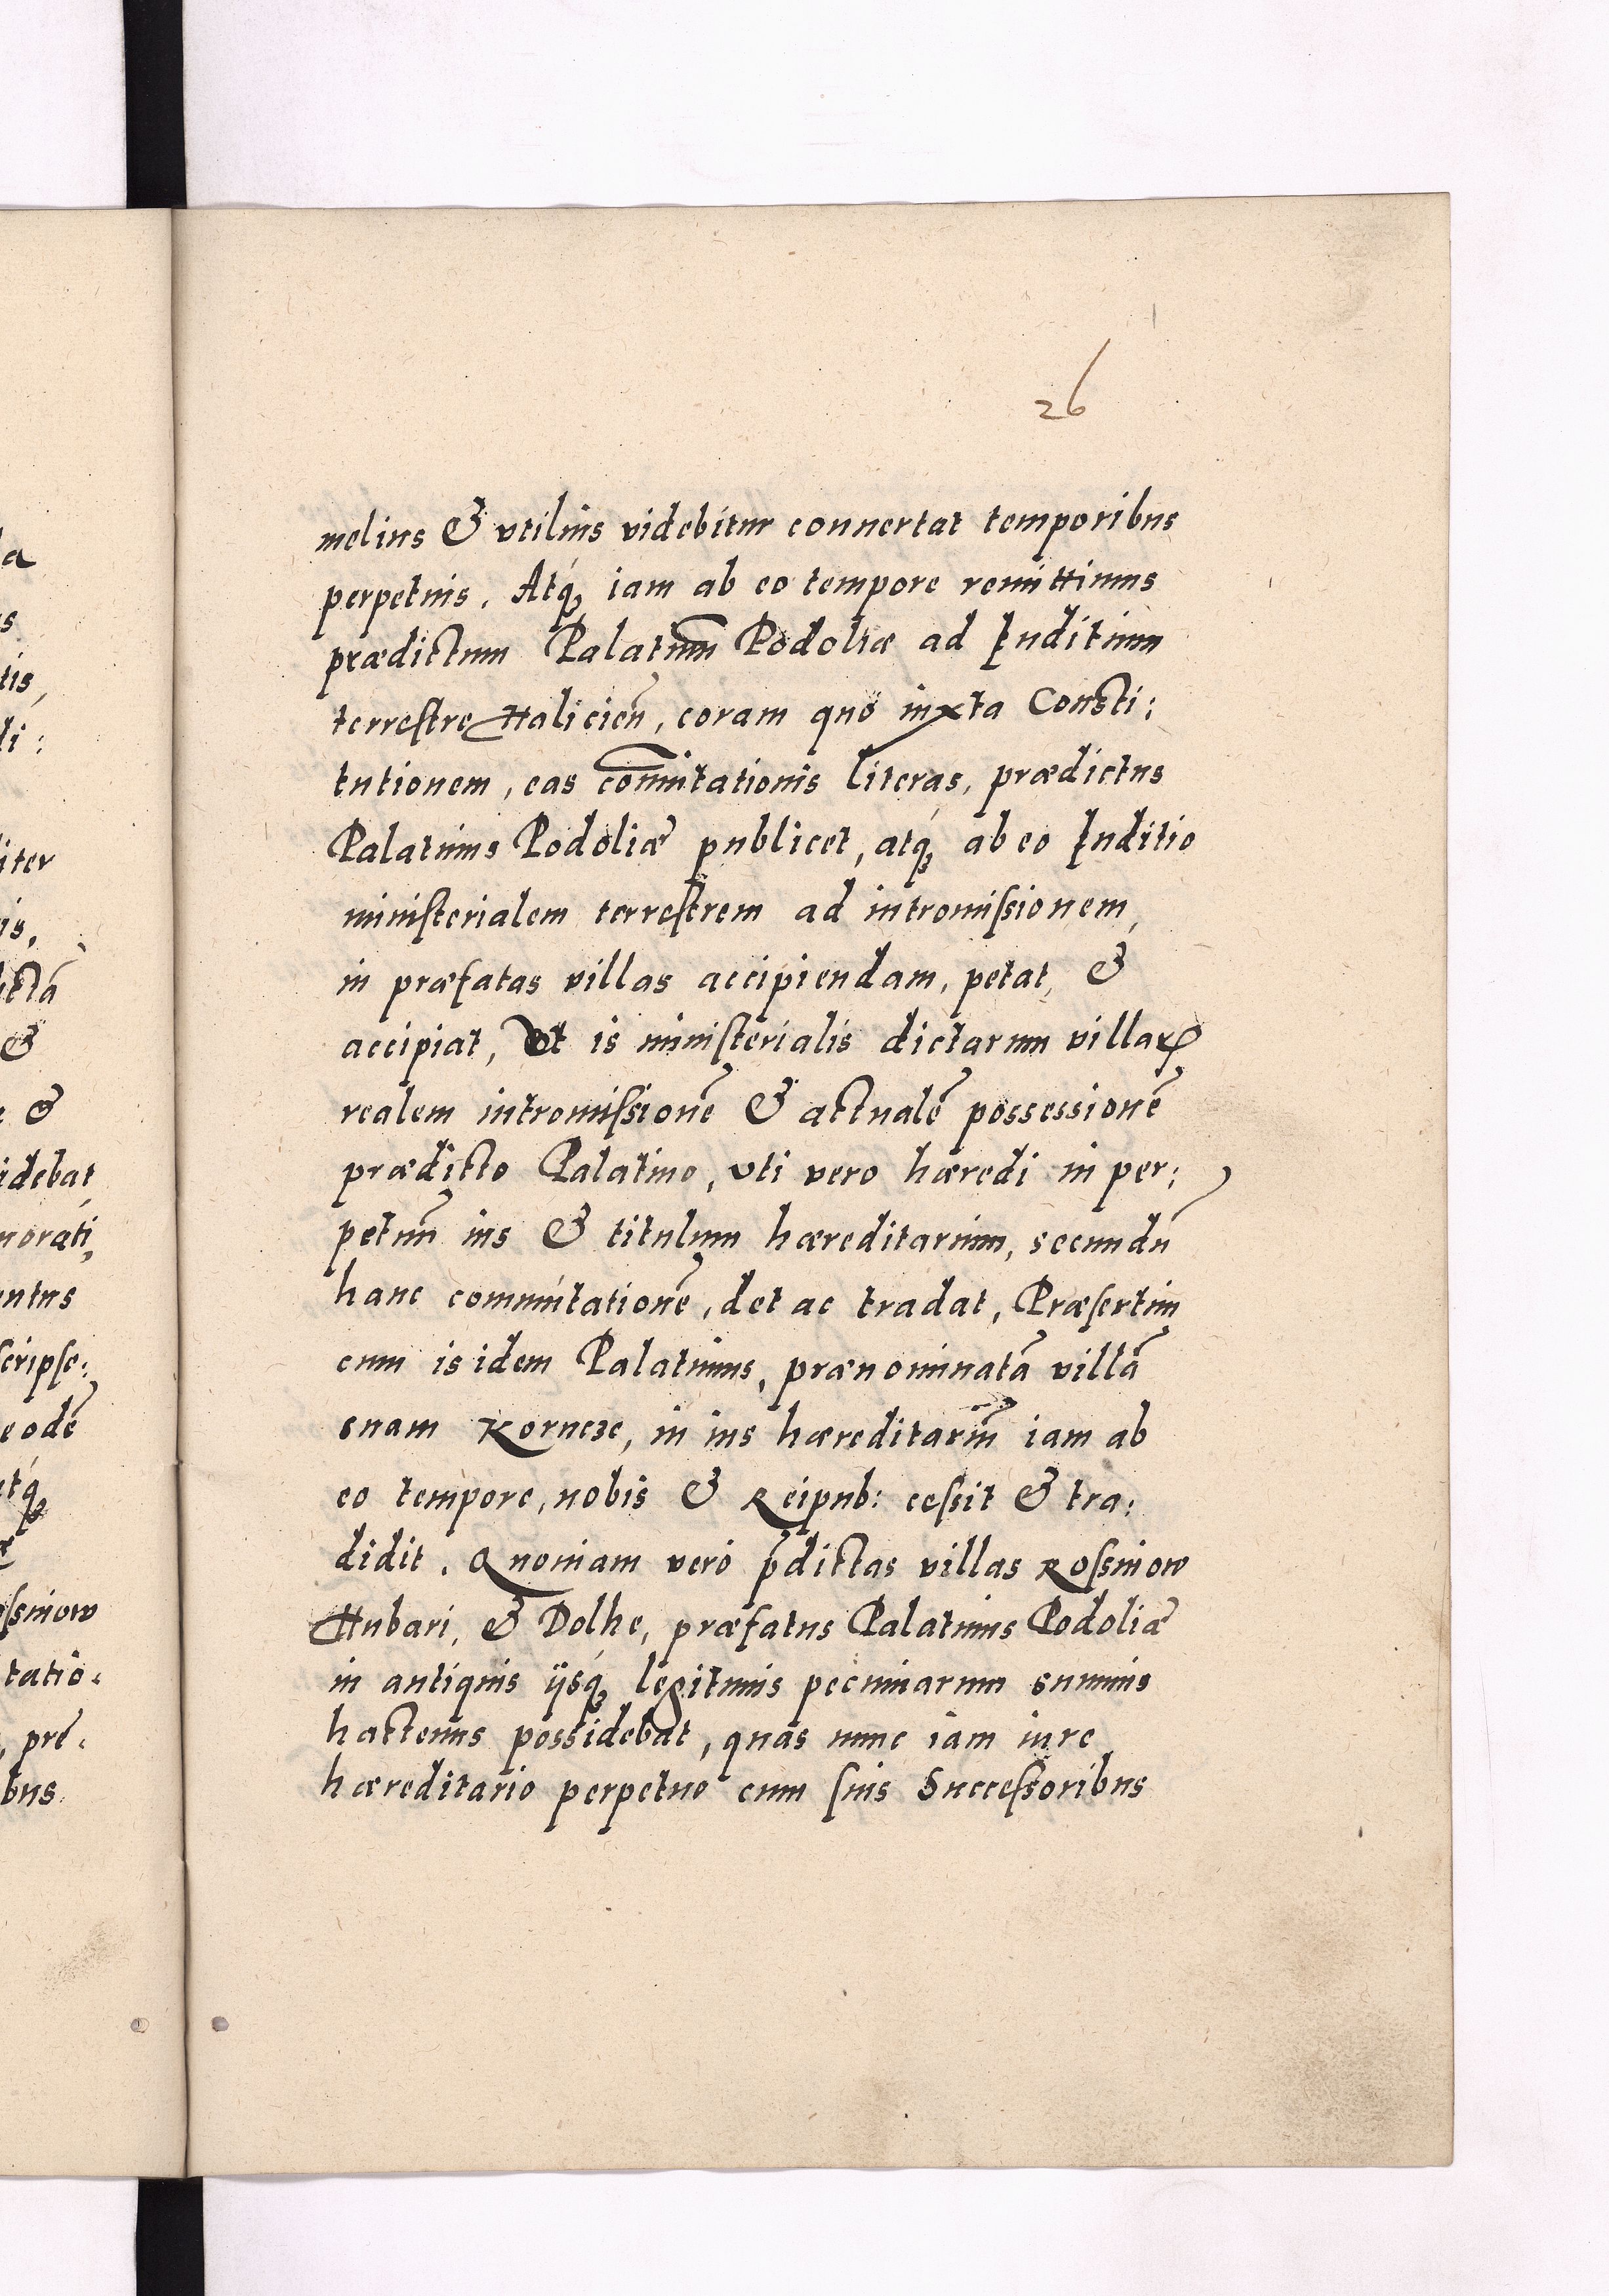 26
melius & vtilius videbitur conuertat temporibus
perpetuis. Atq́ꝫ iam ab eo tempore remittimus
prædictum Palatinum Podoliæ ad Iuditium
terrestre Halicien̄, coram quo iuxta Consti:
tutionem, eas com̄utationis literas, prædictus
Palatinus Podoliæ publicet, atq́ꝫ ab eo Iuditio
ministerialem terrestrem ad intromiſsionem,
in præfatas villas accipiendam, petat, &
accipiat, Vt is ministerialis dictarum villaꝝ
realem intromiſsionē & actualē possessionē
prædicto Palatino, vti vero hæredi in per:
petuū ius & titulum hæreditarium, secundū
hanc commutationē, det ac tradat, Præſertim
cum is idem Palatinus, prænominatā villā
suam Kornicze, in ius hæreditariū iam ab
eo tempore, nobis & Reipub: ceſsit & tra:
didit. Quoniam verò p̄dictas villas Roſsniow
Hubari, & Dolhe, præfatus Palatinus Podoliæ
in antiquis ijsq́ꝫ legitimis pecuniarum summis
hactenus possidebat, quas nunc iam iure
hæreditario perpetuo cum ſuis Succeſsoribus
la
s
tis,
di:
iter
is,
ictā
&
&
idebat
morati,
entus
ſcripſe:
eodē
atq́ꝫ
æ
oſsniow
tatio:
, prę:
bus